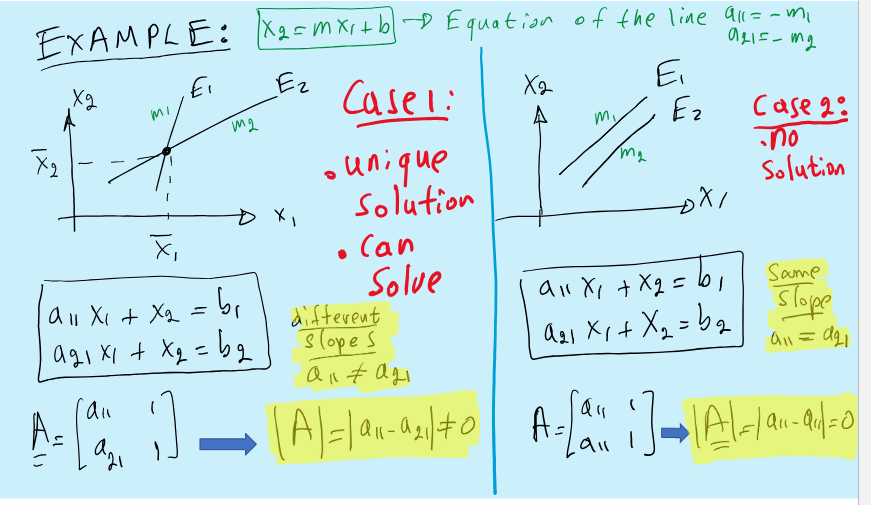 EXAMPLE: x₂ = mx₁ + b → Equation of the line a₁₁ = -m₁
a₂₁ = -m₂
x₂
E₁
E₂
m₁
m₂
x̄₂
x₁
x̄₁
Case 1:
• unique
solution
• Can
Solve
a₁₁ x₁ + x₂ = b₁
a₂₁ x₁ + x₂ = b₂
different
slopes
a₁₁ ≠ a₂₁
A = [a₁₁ 1
a₂₁ 1]
|A| = |a₁₁ - a₂₁| ≠ 0
x₂
E₁
E₂
m₁
m₂
x₁
Case 2:
• no
Solution
a₁₁ x₁ + x₂ = b₁
a₂₁ x₁ + x₂ = b₂
Same
slope
a₁₁ = a₂₁
A = [a₁₁ 1
a₁₁ 1]
|A| = |a₁₁ - a₁₁| = 0